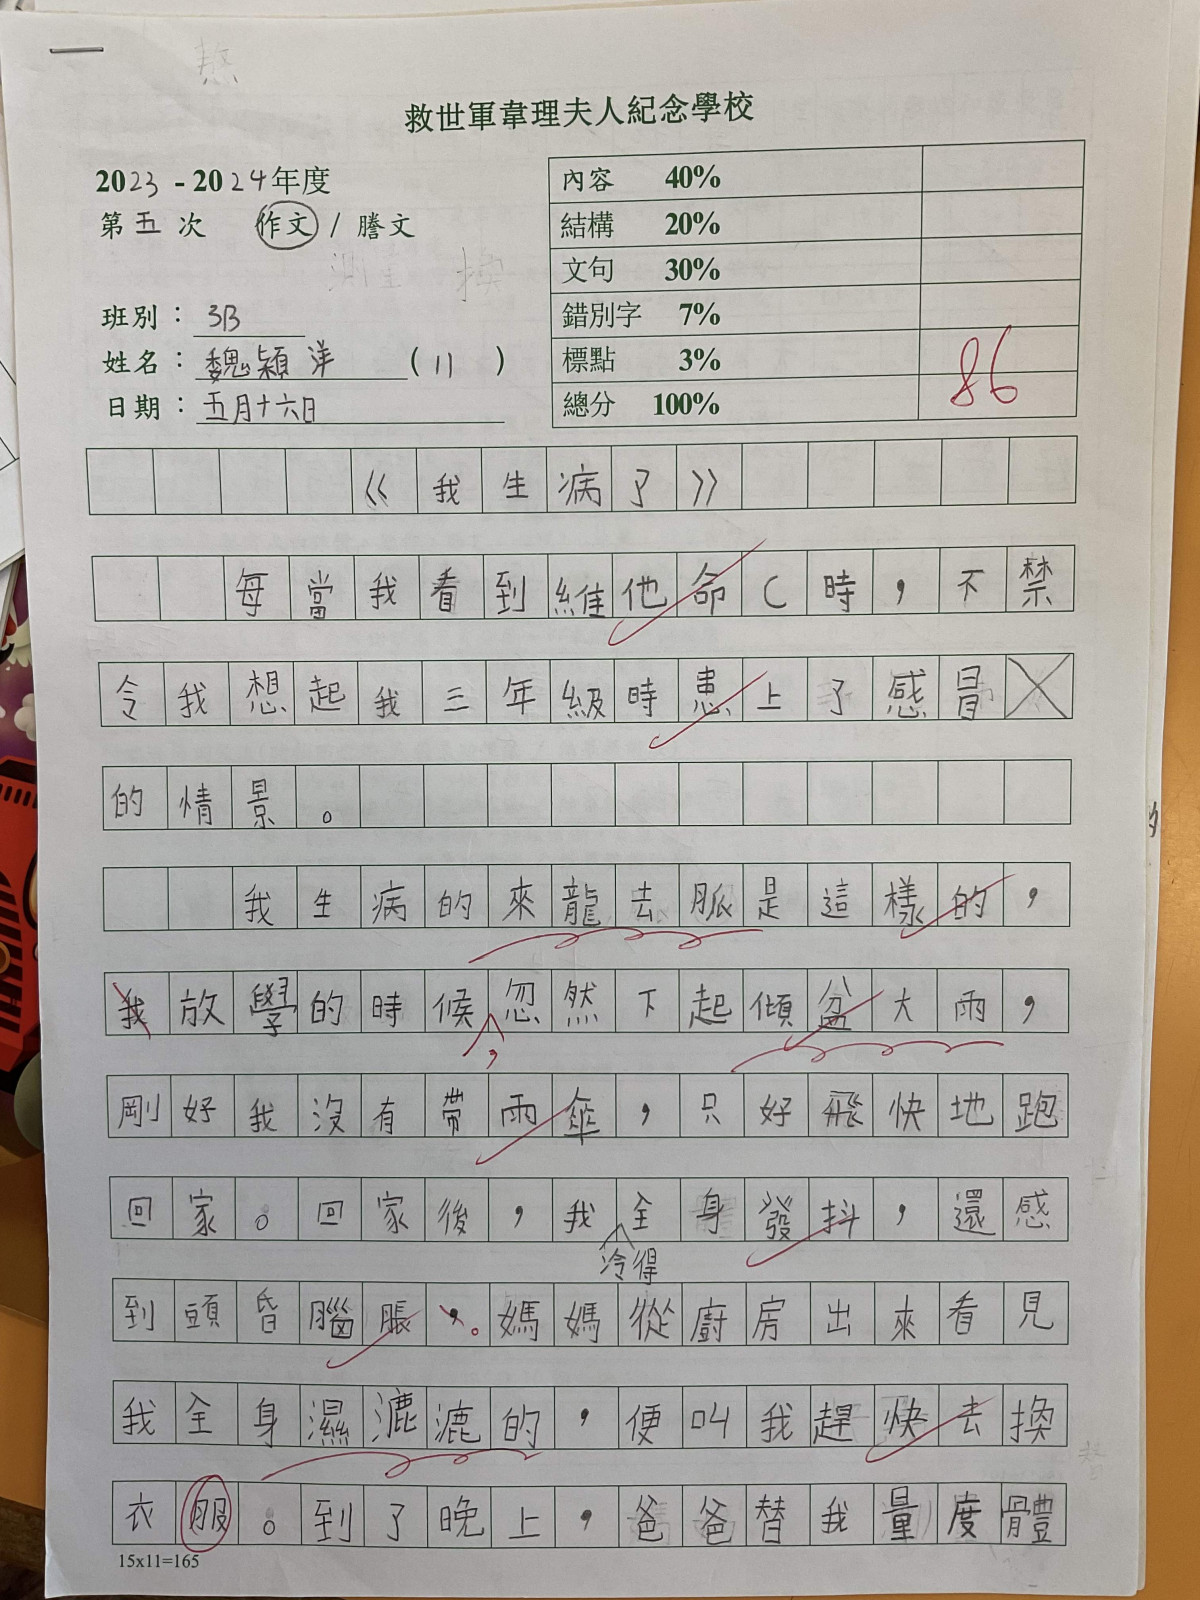 救世軍韋理夫人紀念學校
2023 - 2024年度
第五次 作文 / 謄文
班別：3B
姓名：魏穎洋 (11)
日期：五月十六日
內容 40%
結構 20%
文句 30%
錯別字 7%
標點 3%
總分 100% 86
《我生病了》
每當我看到維他命C時，不禁
令我想起我三年級時患上了感冒
的情景。
我生病的來龍去脈是這樣的，
我放學的時候，忽然下起傾盆大雨，
剛好我沒有帶雨傘，只好飛快地跑
回家。回家後，我冷得全身發抖，還感
到頭昏腦脹。媽媽從廚房出來看見
我全身濕漉漉的，便叫我趕快去換
衣服。到了晚上，爸爸替我量度體
15x11=165